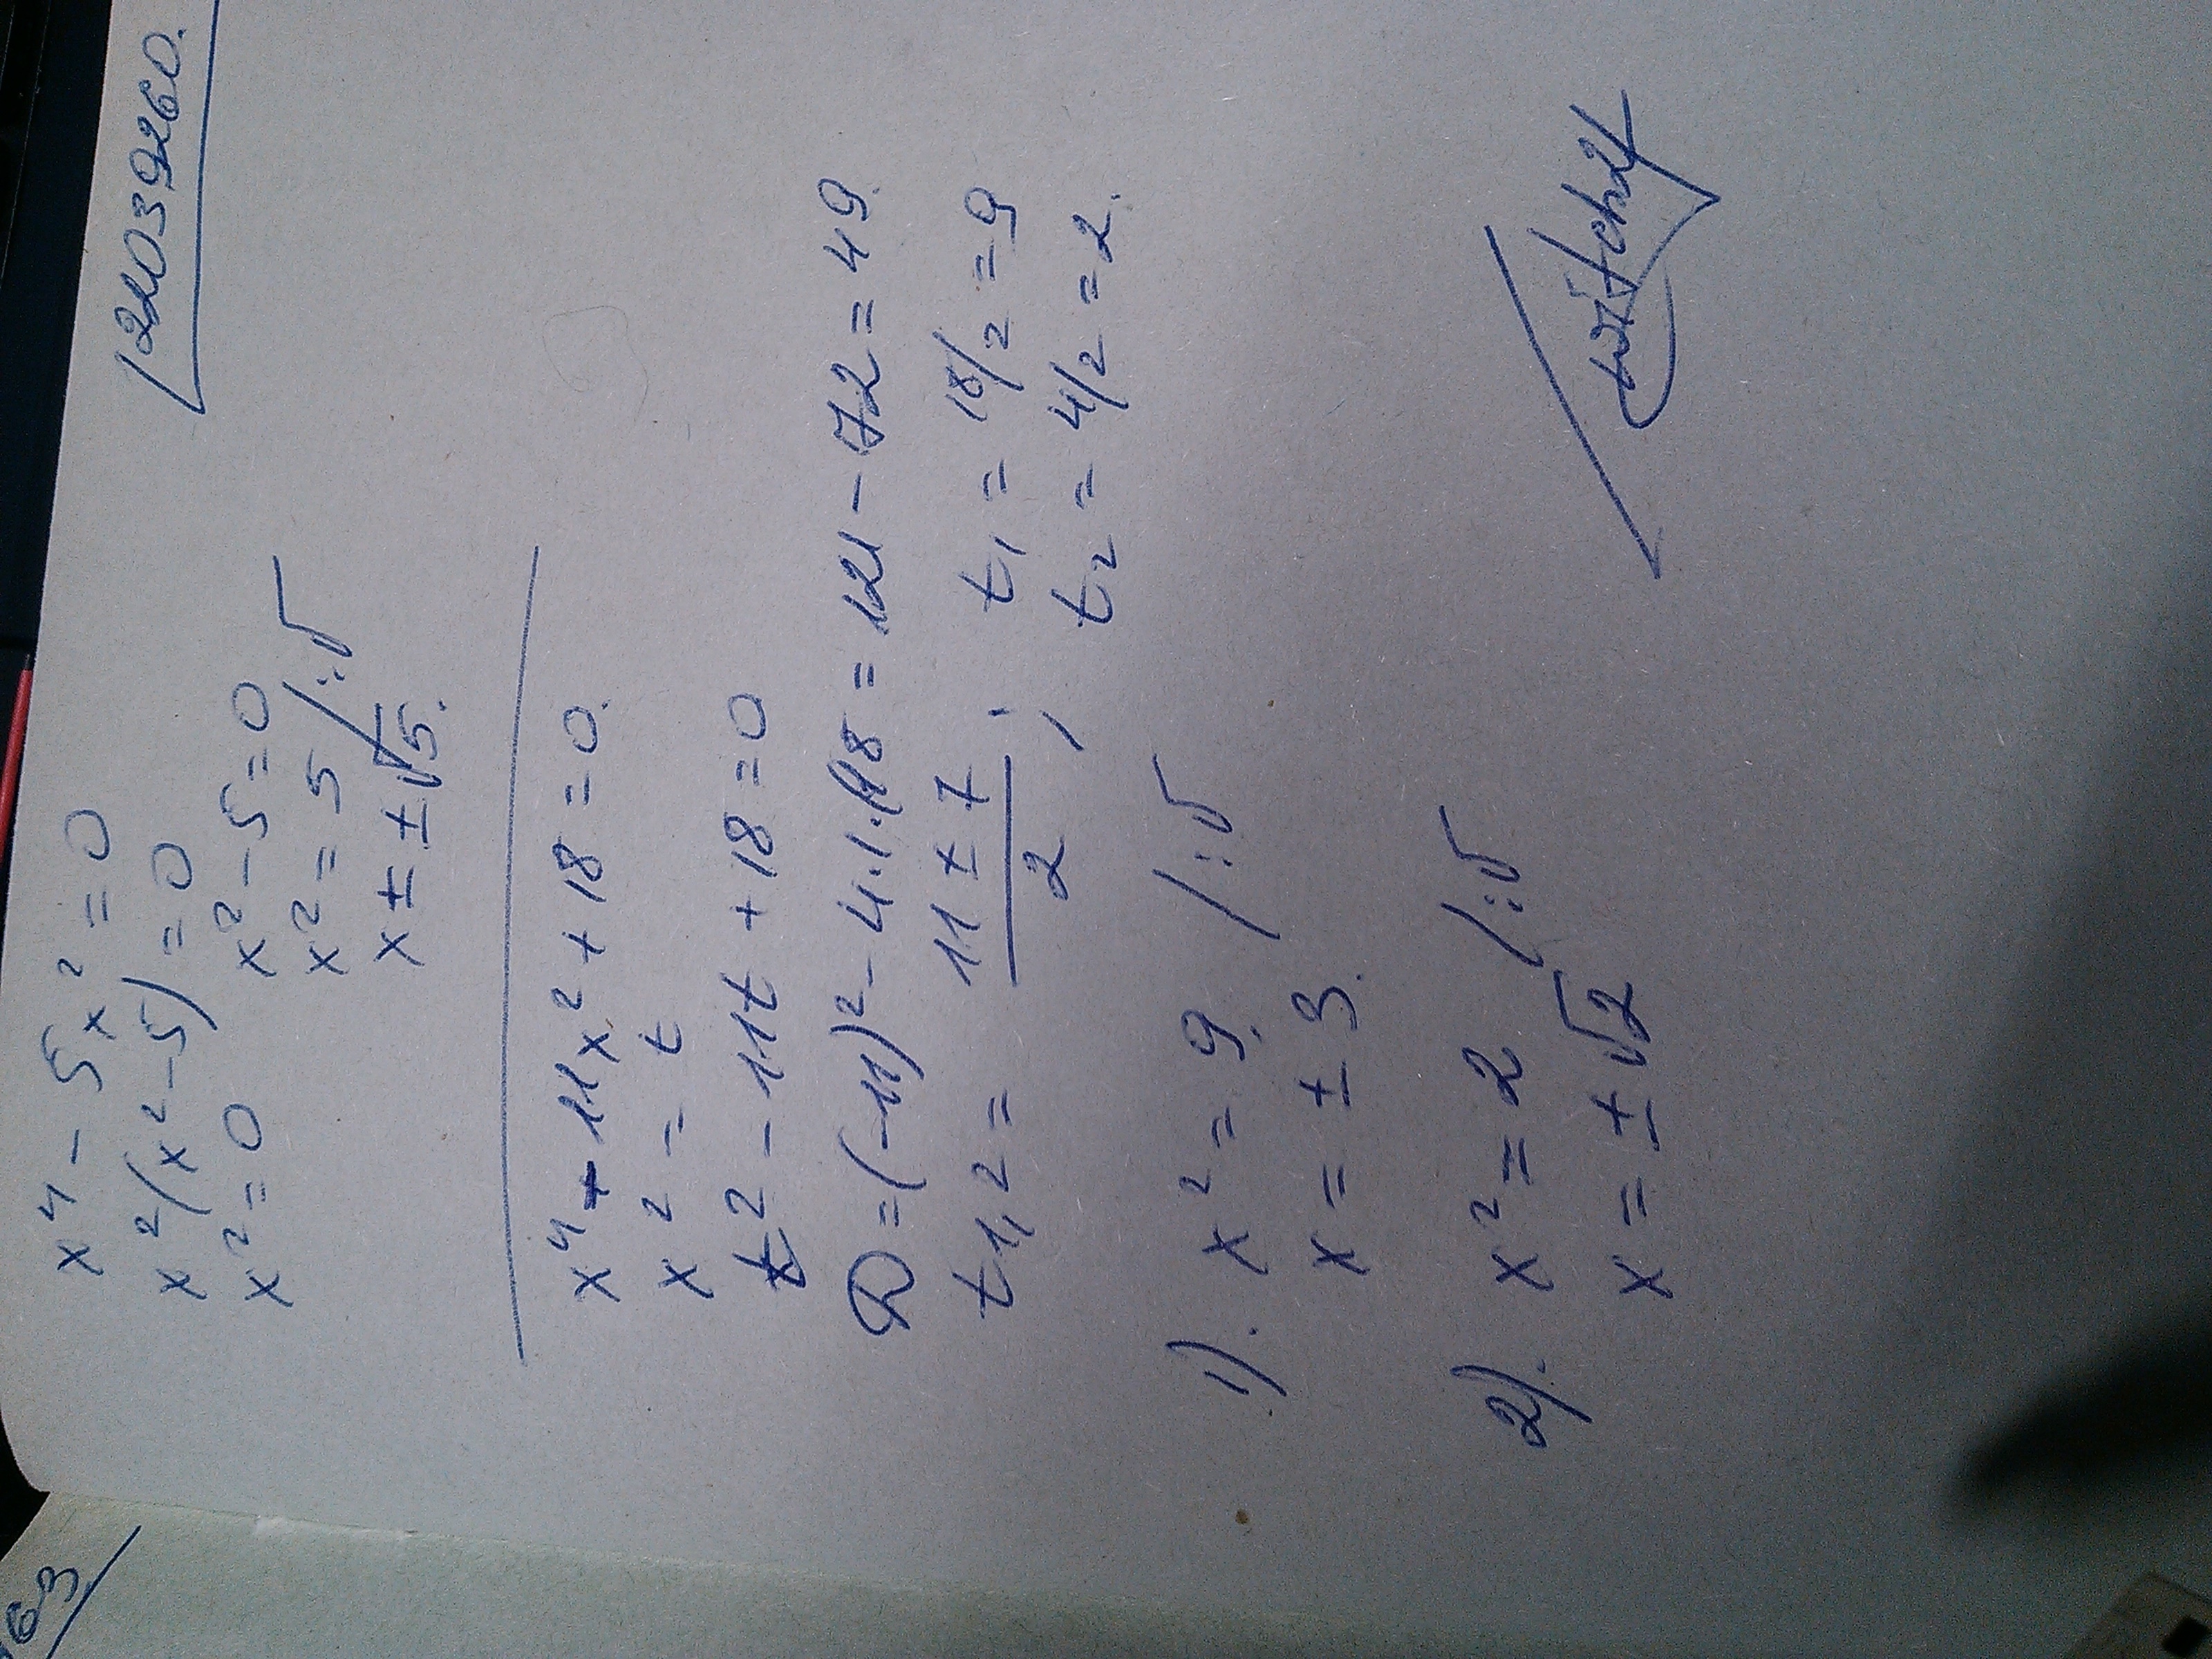 122039260.
x⁴ - 5x² = 0
x²(x² - 5) = 0
x² = 0 x² - 5 = 0
x² = 5 /:√
x ± ± √5.
x⁴ - 11x² + 18 = 0.
x² = t
t² - 11t + 18 = 0
D = (-11)² - 4.1.18 = 121 - 72 = 49.
t1,2 = (11 ± 7)/2 ; t₁ = 18/2 = 9
t₂ = 4/2 = 2.
1). x² = 9. /:√
x = ± 3.
2). x² = 2 /:√
x = ± √2
63